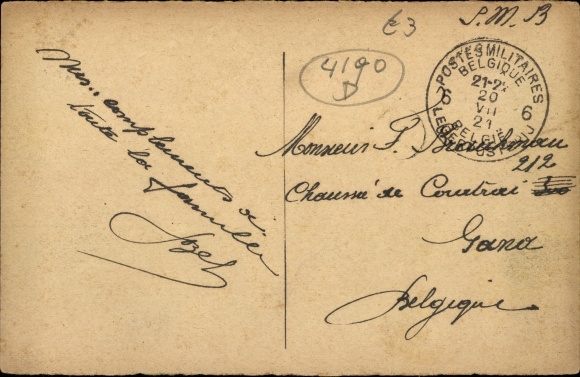 S.M.B
€3
4190
D
POSTES MILITAIRES
BELGIQUE
21-2
20
VII
21
BELGIE
LEGERPOSTERIJ
6 6
Mes.. complements à
toute la famille
Jozef
Monsieur F.
212
Chaussé de Courtrai
Gand
Belgique